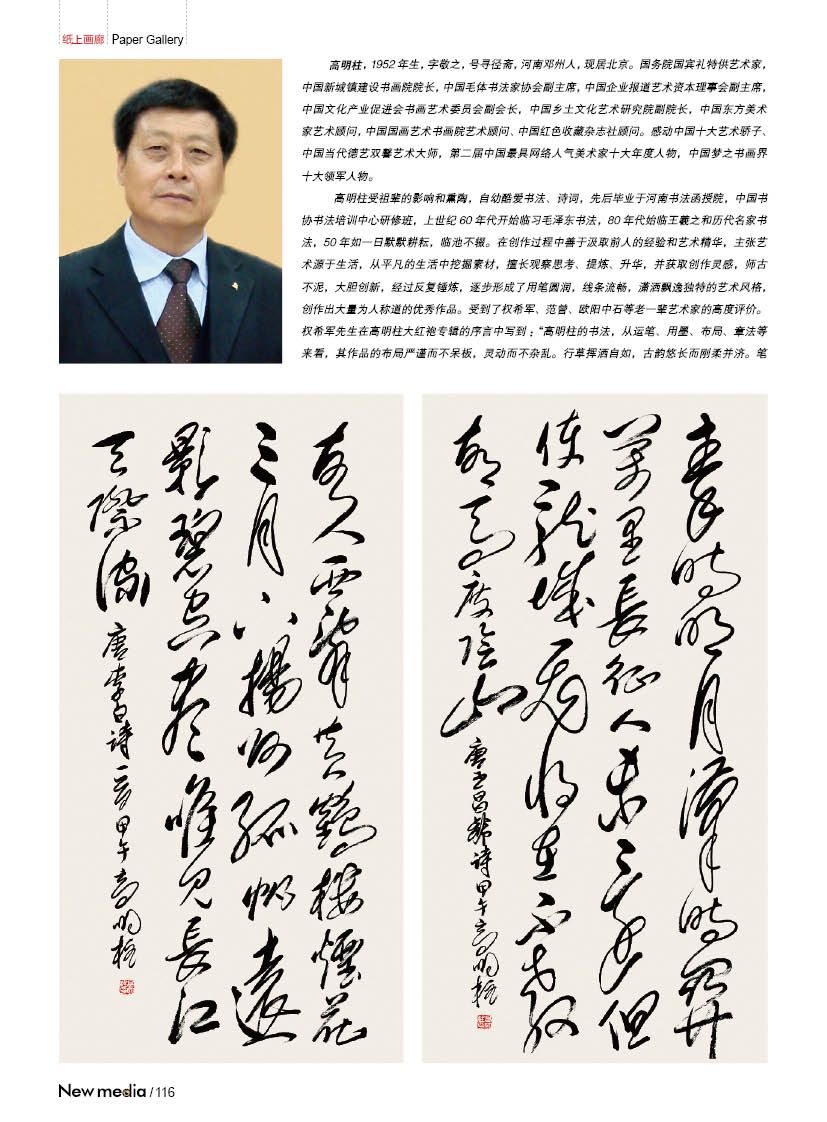 纸上画廊 Paper Gallery
高明柱，1952年生，字敬之，号寻径斋，河南邓州人，现居北京。国务院国宾礼特供艺术家，
中国新城镇建设书画院院长，中国毛体书法家协会副主席，中国企业报道艺术资本理事会副主席，
中国文化产业促进会书画艺术委员会副会长，中国乡土文化艺术研究院副院长，中国东方美术
家艺术顾问，中国国画艺术书画院艺术顾问、中国红色收藏杂志社顾问。感动中国十大艺术骄子、
中国当代德艺双馨艺术大师，第二届中国最具网络人气美术家十大年度人物，中国梦之书画界
十大领军人物。
高明柱受祖辈的影响和熏陶，自幼酷爱书法、诗词，先后毕业于河南书法函授院，中国书
协书法培训中心研修班，上世纪60年代开始临习毛泽东书法，80年代始临王羲之和历代名家书
法，50年如一日默默耕耘，临池不辍。在创作过程中善于汲取前人的经验和艺术精华，主张艺
术源于生活，从平凡的生活中挖掘素材，擅长观察思考、提炼、升华，并获取创作灵感，师古
不泥，大胆创新，经过反复锤炼，逐步形成了用笔圆润，线条流畅，潇洒飘逸独特的艺术风格，
创作出大量为人称道的优秀作品。受到了权希军、范曾、欧阳中石等老一辈艺术家的高度评价。
权希军先生在高明柱大红袍专辑的序言中写到：“高明柱的书法，从运笔、用墨、布局、章法等
来看，其作品的布局严谨而不呆板，灵动而不杂乱。行草挥洒自如，古韵悠长而刚柔并济。笔
故人西辭黄鶴樓煙花
三月下揚州孤帆遠
影碧空盡唯見長江
天際流
唐李白詩一首甲午高明柱
秦時明月漢時關
萬里長征人未還但
使龍城飛將在不教
胡馬度陰山
唐王昌齡詩甲午高明柱
New media / 116